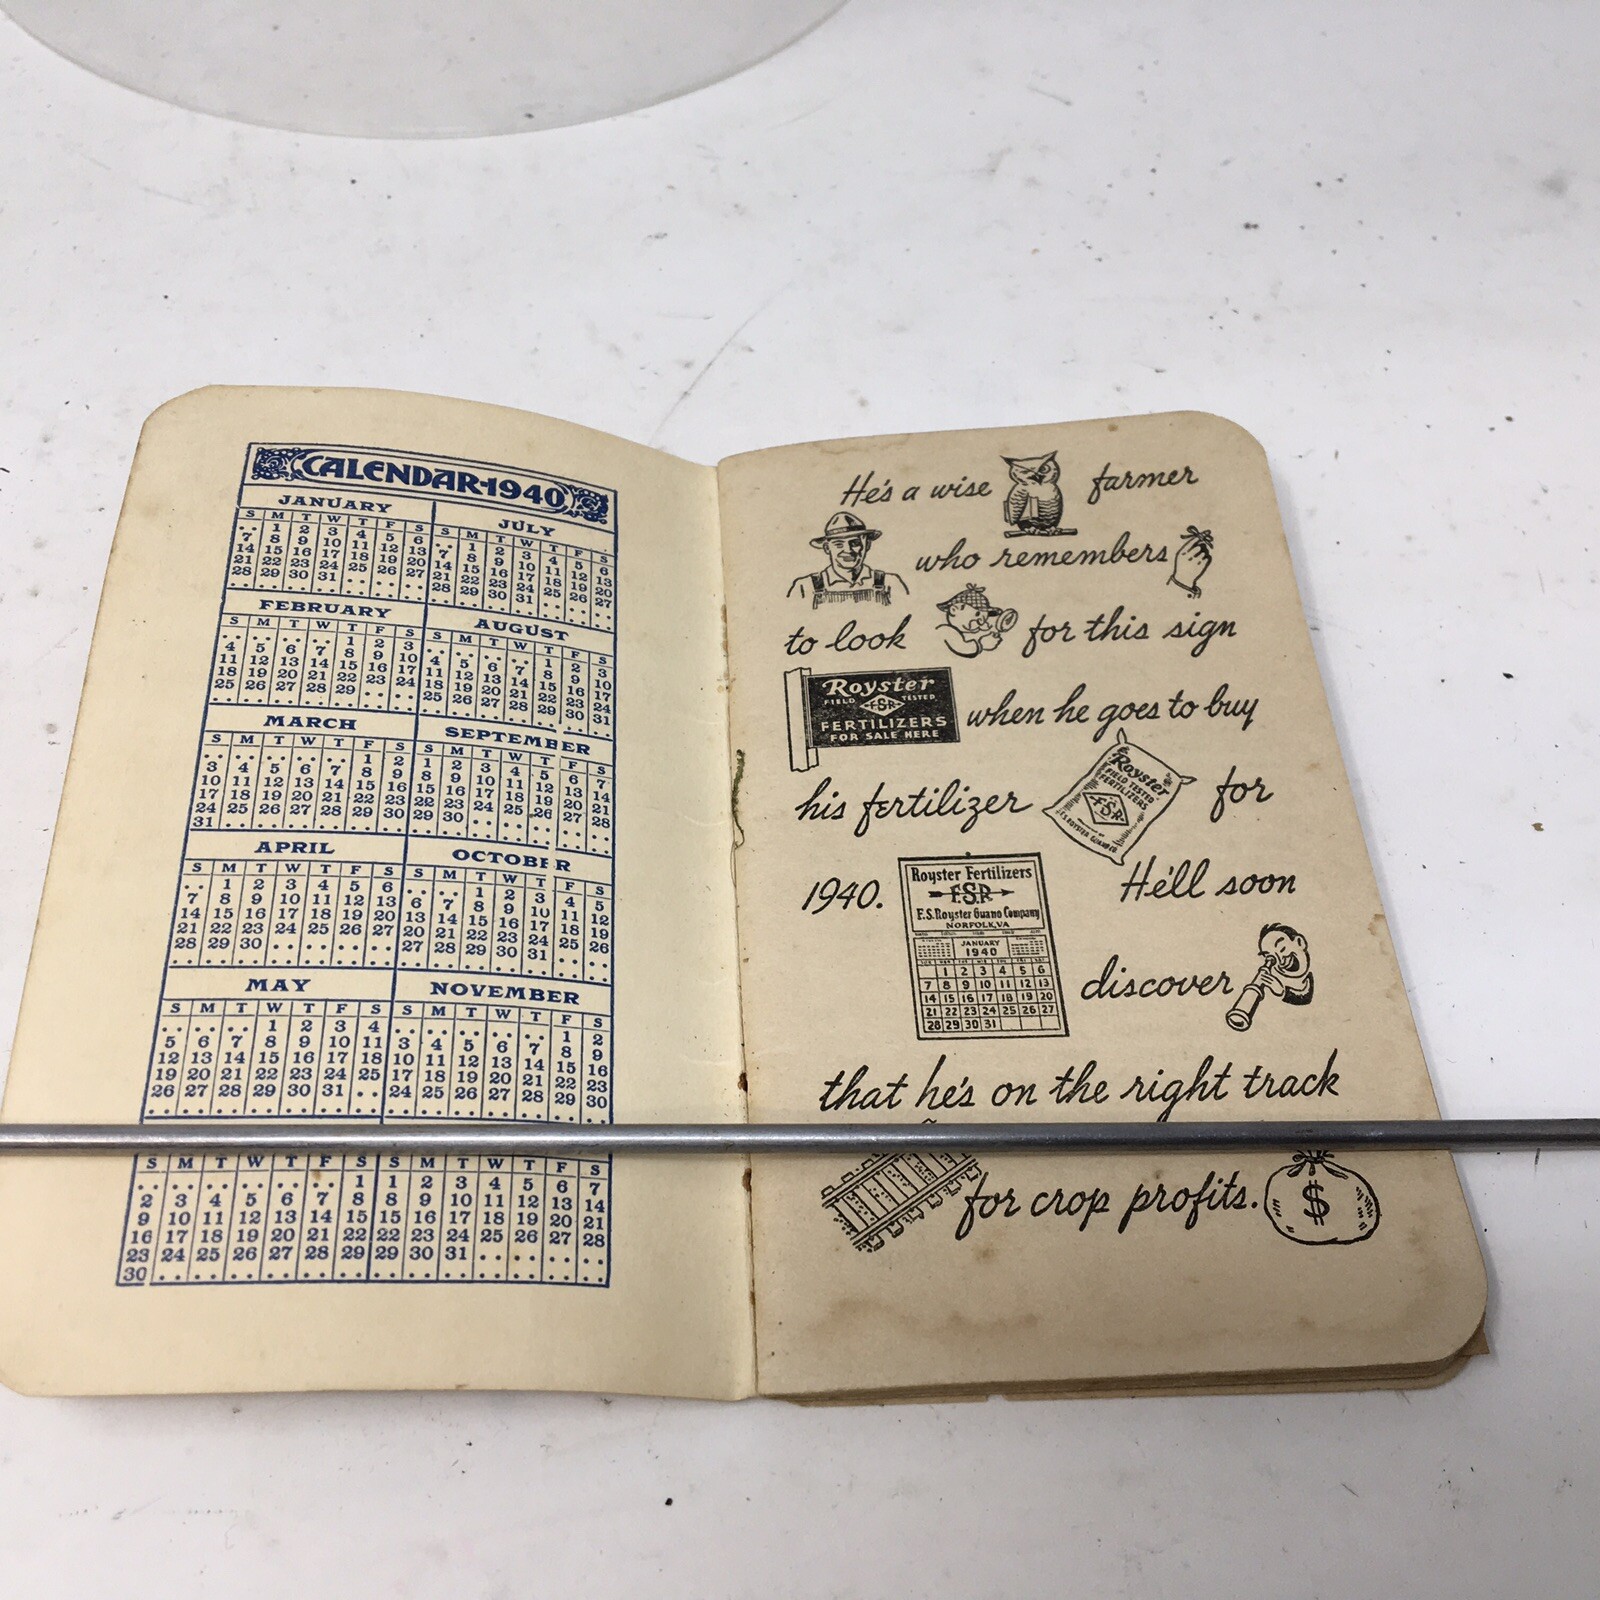 CALENDAR-1940
JANUARY
S M T W T F S
.. 1 2 3 4 5 6
7 8 9 10 11 12 13
14 15 16 17 18 19 20
21 22 23 24 25 26 27
28 29 30 31 .. .. ..
FEBRUARY
S M T W T F S
.. .. .. .. 1 2 3
4 5 6 7 8 9 10
11 12 13 14 15 16 17
18 19 20 21 22 23 24
25 26 27 28 29 .. ..
MARCH
S M T W T F S
.. .. .. .. .. 1 2
3 4 5 6 7 8 9
10 11 12 13 14 15 16
17 18 19 20 21 22 23
24 25 26 27 28 29 30
31 .. .. .. .. .. ..
APRIL
S M T W T F S
.. 1 2 3 4 5 6
7 8 9 10 11 12 13
14 15 16 17 18 19 20
21 22 23 24 25 26 27
28 29 30 .. .. .. ..
MAY
S M T W T F S
.. .. .. 1 2 3 4
5 6 7 8 9 10 11
12 13 14 15 16 17 18
19 20 21 22 23 24 25
26 27 28 29 30 31 ..
S M T W T F S
.. .. .. .. .. .. 1
2 3 4 5 6 7 8
9 10 11 12 13 14 15
16 17 18 19 20 21 22
23 24 25 26 27 28 29
30 .. .. .. .. .. ..
JULY
S M T W T F S
.. 1 2 3 4 5 6
7 8 9 10 11 12 13
14 15 16 17 18 19 20
21 22 23 24 25 26 27
28 29 30 31 .. .. ..
AUGUST
S M T W T F S
.. .. .. .. 1 2 3
4 5 6 7 8 9 10
11 12 13 14 15 16 17
18 19 20 21 22 23 24
25 26 27 28 29 30 31
SEPTEMBER
S M T W T F S
1 2 3 4 5 6 7
8 9 10 11 12 13 14
15 16 17 18 19 20 21
22 23 24 25 26 27 28
29 30 .. .. .. .. ..
OCTOBER
S M T W T F S
.. .. 1 2 3 4 5
6 7 8 9 10 11 12
13 14 15 16 17 18 19
20 21 22 23 24 25 26
27 28 29 30 31 .. ..
NOVEMBER
S M T W T F S
.. .. .. .. .. 1 2
3 4 5 6 7 8 9
10 11 12 13 14 15 16
17 18 19 20 21 22 23
24 25 26 27 28 29 30
S M T W T F S
1 2 3 4 5 6 7
8 9 10 11 12 13 14
15 16 17 18 19 20 21
22 23 24 25 26 27 28
29 30 31 .. .. .. ..
He's a wise farmer
who remembers
to look for this sign
Royster
FIELD F.S.R. TESTED
FERTILIZERS
FOR SALE HERE
when he goes to buy
his fertilizer for
Royster
FIELD TESTED
FERTILIZERS
F.S.R.
F.S. ROYSTER GUANO CO.
1940. He'll soon
Royster Fertilizers
F.S.R.
F.S. Royster Guano Company
NORFOLK, VA
JANUARY
1940
1 2 3 4 5 6
7 8 9 10 11 12 13
14 15 16 17 18 19 20
21 22 23 24 25 26 27
28 29 30 31
discover
that he's on the right track
for crop profits.
$